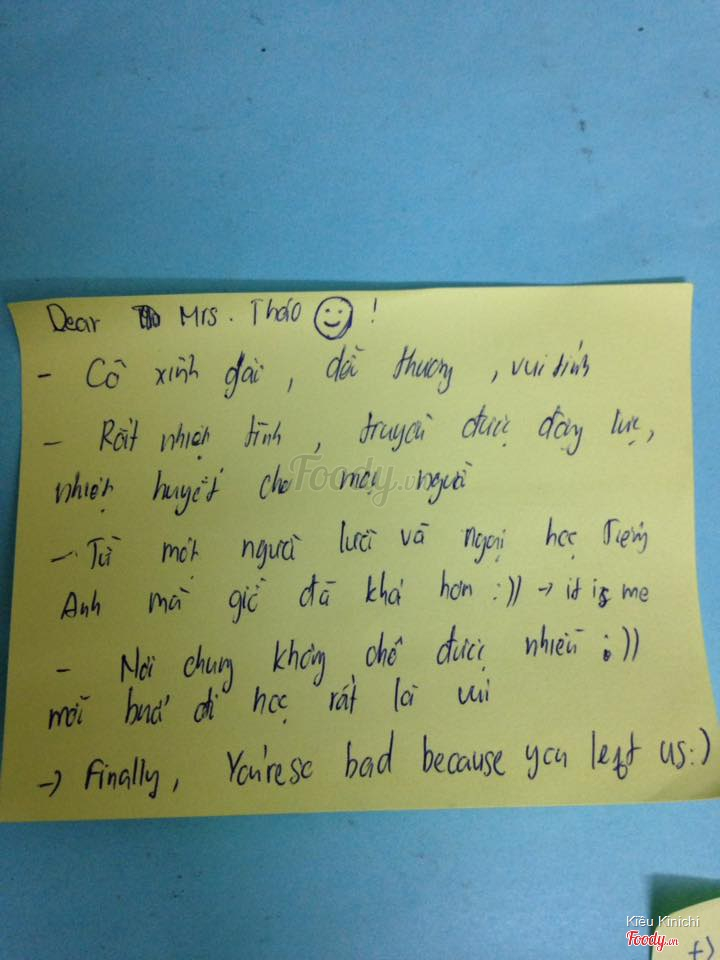 Dear Mrs. Thảo !
- Cô xinh gái, dễ thương, vui tính
- Rất nhiệt tình, truyền được động lực,
nhiệt huyết cho mọi người
- Từ một người lười và ngại học Tiếng
Anh mà giờ đã khá hơn :)) -> it is me
- Nói chung không chê được nhiều :))
mỗi buổi đi học rất là vui
-> Finally, You're so bad because you left us :)
Foody.vn
Kiều Kinichi
Foody.vn